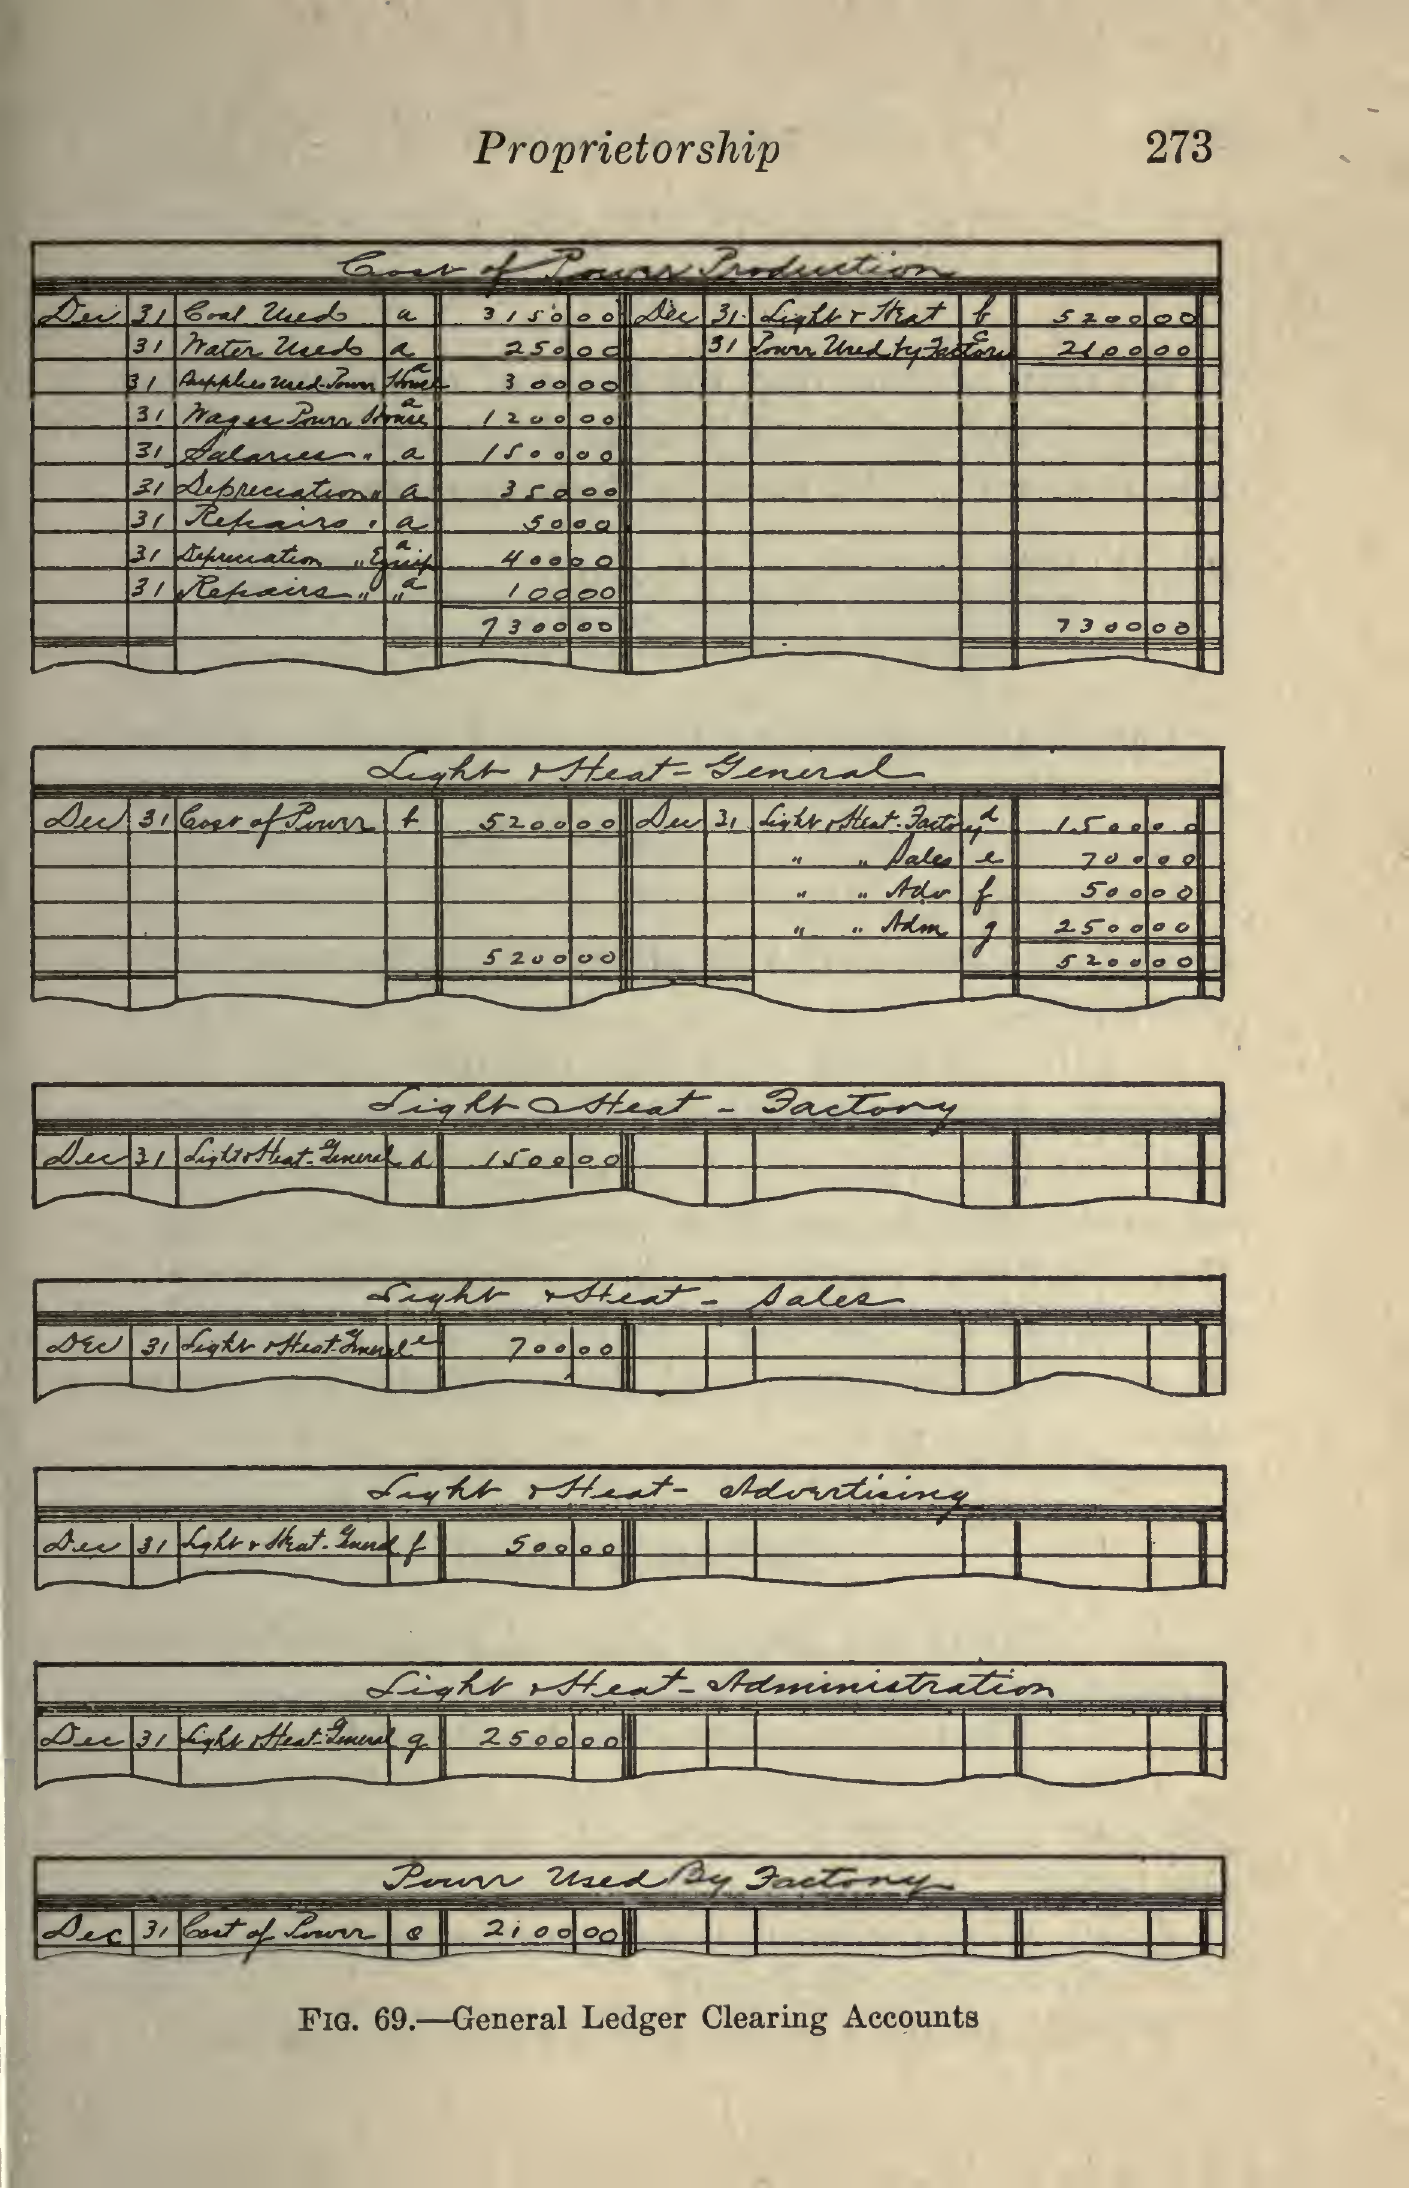 Proprietorship 273
Cost of Power Production
Dec 31 Coal Used a 3150 00 Dec 31 Light & Heat b 5200 00
31 Water Used a 250 00 31 Power Used by Factory c 2100 00
31 Supplies Used-Power House a 300 00
31 Wages Power House a 1200 00
31 Salaries " a 1500 00
31 Depreciation " a 350 00
31 Repairs " a 50 00
31 Depreciation " Equip a 400 00
31 Repairs " " a 100 00
7300 00 7300 00
Light & Heat - General
Dec 31 Cost of Power b 5200 00 Dec 31 Light & Heat-Factory d 1500 00
" " Sales e 700 00
" " Adv f 500 00
" " Adm g 2500 00
5200 00 5200 00
Light & Heat - Factory
Dec 31 Light & Heat-General d 1500 00
Light & Heat - Sales
Dec 31 Light & Heat-General e 700 00
Light & Heat - Advertising
Dec 31 Light & Heat-General f 500 00
Light & Heat - Administration
Dec 31 Light & Heat-General g 2500 00
Power Used By Factory
Dec 31 Cost of Power c 2100 00
FIG. 69.—General Ledger Clearing Accounts